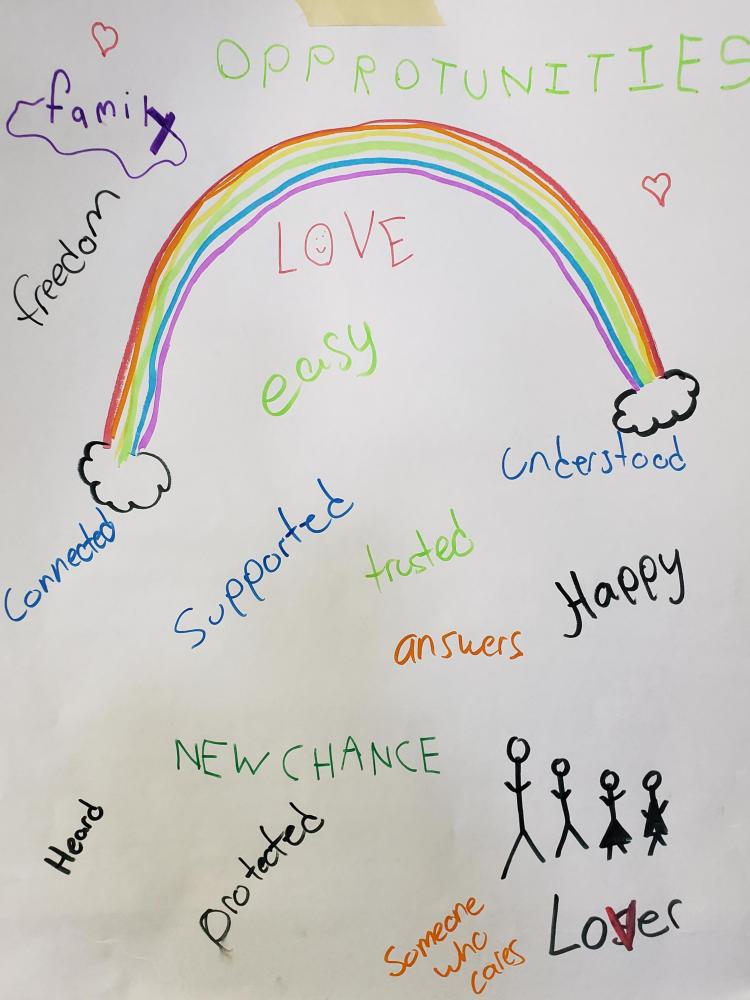 OPPROTUNITIES
family
freedom
LOVE
easy
Understood
Connected
Supported
trusted
Happy
answers
NEW CHANCE
Heard
protected
Someone
who
cares
LoVer